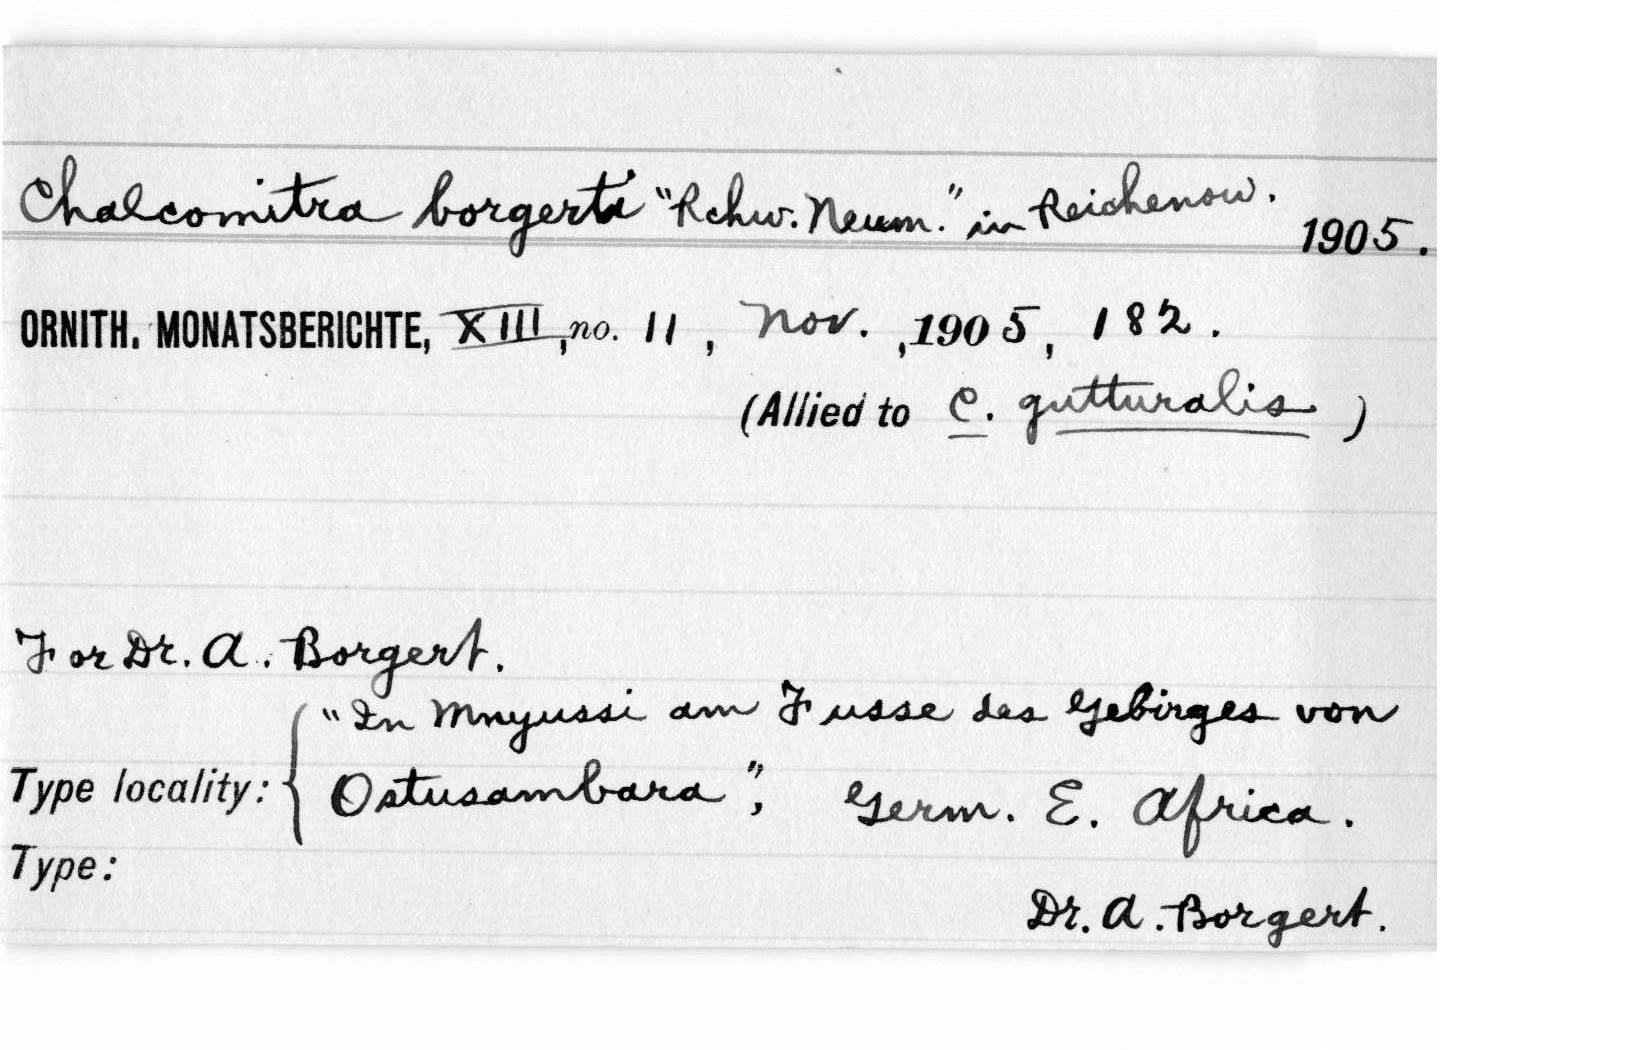 Chalcomitra borgerti "Rchw. Neum." in Reichenow. 1905.
ORNITH. MONATSBERICHTE, XIII, no. 11, Nov., 1905, 182.
(Allied to C. gutturalis)
For Dr. A. Borgert.
"In Mnyussi am Fusse des Gebirges von
Type locality: Ostusambara", Germ. E. Africa.
Type:
Dr. A. Borgert.